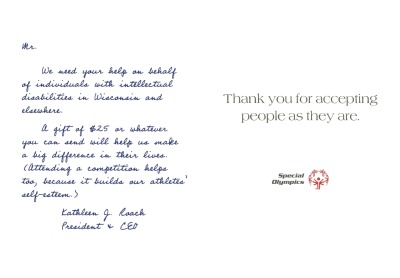 Mr.
We need your help on behalf
of individuals with intellectual
disabilities in Wisconsin and
elsewhere.
A gift of $25 or whatever
you can send will help us make
a big difference in their lives.
(Attending a competition helps
too, because it builds our athletes'
self-esteem.)
Kathleen J. Roach
President & CEO
Thank you for accepting
people as they are.
Special
Olympics